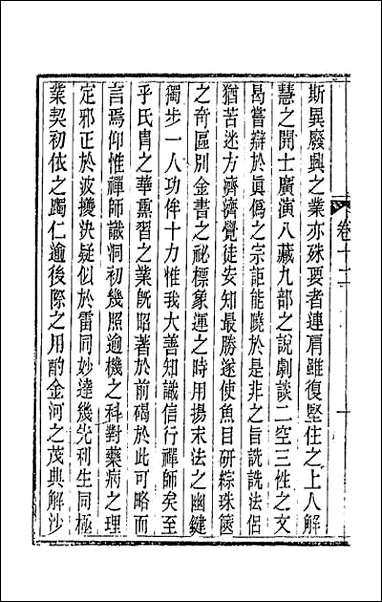 斯異廢興之業亦殊要者連肩雖復堅住之上人解
慧之開士廣演八藏九部之說劇談二空三性之文
曷嘗辯於眞僞之宗詎能曉於是非之旨詵詵法侶
猶苦迷方濟濟覺徒安知最勝遂使魚目研綜珠篋
之奇區別金書之祕標象運之時用揚末法之幽鍵
獨步一人功侔十力惟我大善知識信行禪師矣至
乎氏胄之華熏習之業旣昭著於前碣於此可略而
言焉仰惟禪師識洞初幾照逾機之科對藥病之理
定邪正於波擾決疑似於雷同妙達幾先利生同極
業契初依之躅仁逾後際之用酌金河之茂典解沙
卷十二